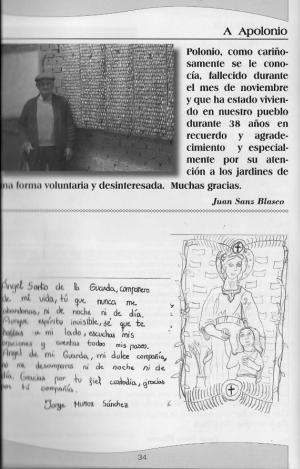 A Apolonio
Polonio, como cariño-
samente se le cono-
cía, fallecido durante
el mes de noviembre
y que ha estado vivien-
do en nuestro pueblo
durante 38 años en
recuerdo y agrade-
cimiento y especial-
mente por su aten-
ción a los jardines de
na forma voluntaria y desinteresada. Muchas gracias.
Juan Sanz Blasco
Angel Santo de la Guarda, compañero
de mi vida, tú que nunca me
abandonas, ni de noche ni de día.
Aunque espíritu invisible, sé que te
hallas a mi lado, escuchas mis
oraciones y cuentas todos mis pasos.
Angel de mi Guarda, mi dulce compañía,
no me desampares ni de noche ni de
día. Gracias por tu fiel custodia, gracias
por tú compañía.
Jorge Muñoz Sánchez
34